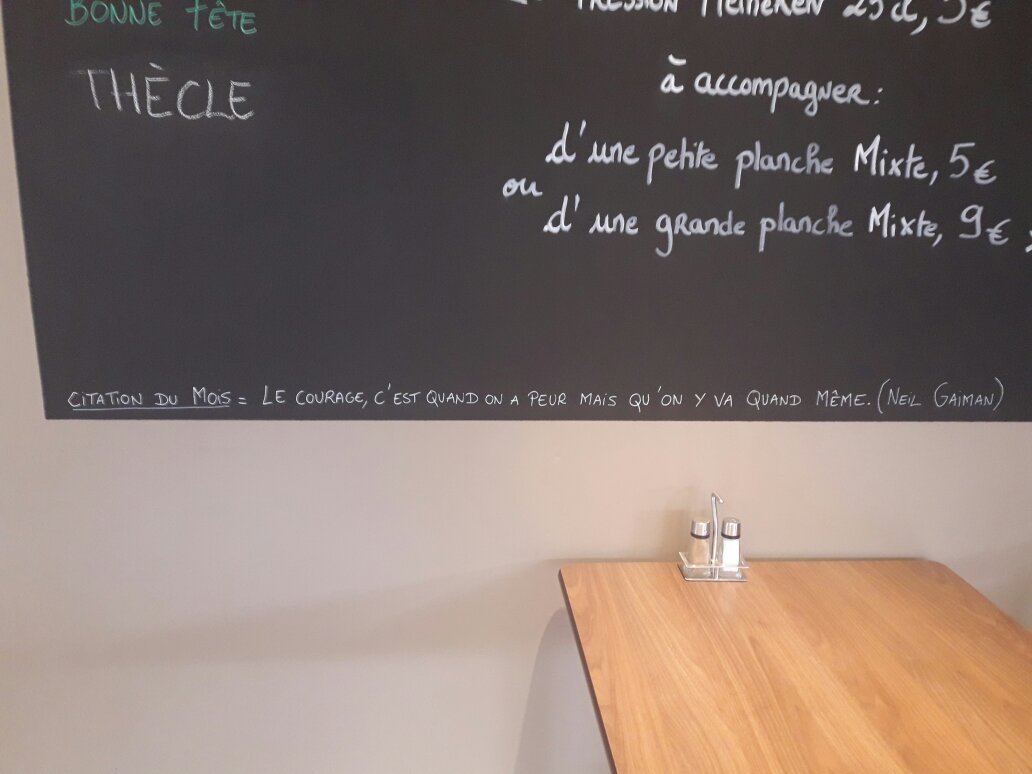 BONNE FÊTE
THÈCLE
PRESSION HEINEKEN 25cl, 3€
à accompagner:
d'une petite planche Mixte, 5€
ou
d'une grande planche Mixte, 9€
CITATION DU MOIS = LE COURAGE, C'EST QUAND ON A PEUR MAIS QU'ON Y VA QUAND MÊME. (NEIL GAIMAN)